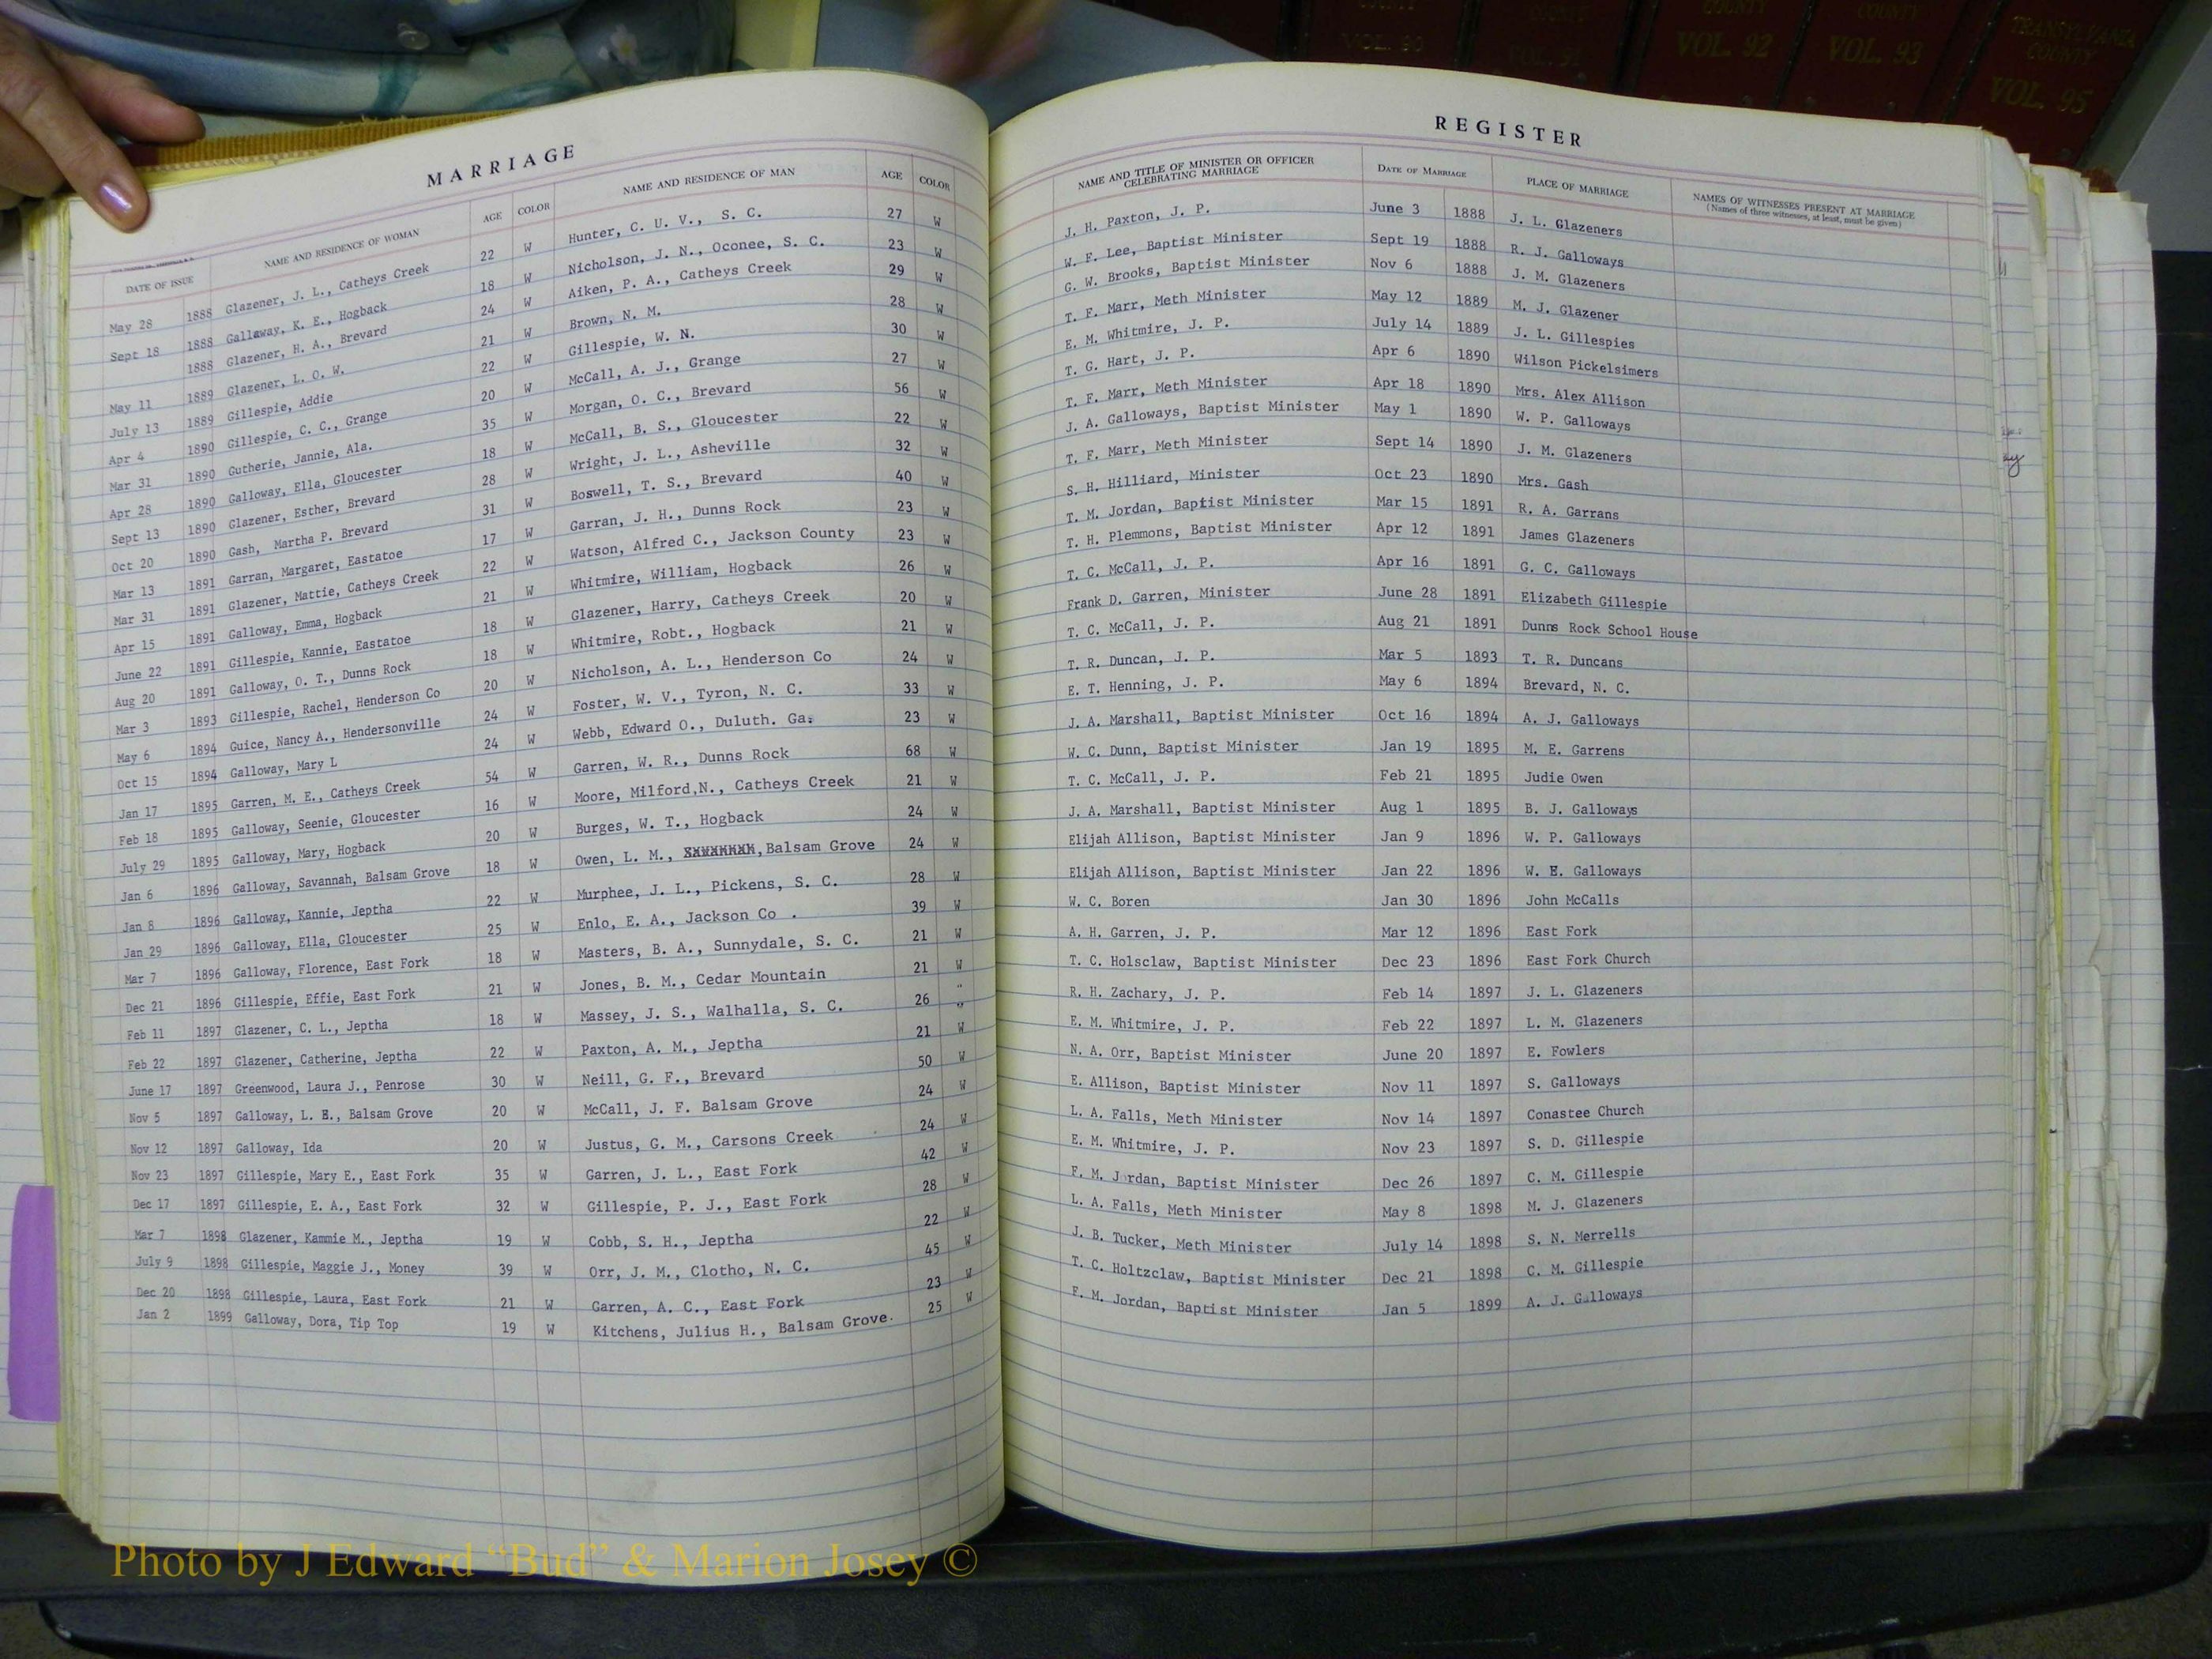 MARRIAGE
DATE OF ISSUE NAME AND RESIDENCE OF WOMAN AGE COLOR NAME AND RESIDENCE OF MAN AGE COLOR
May 28 1888 Glazener, J. L., Catheys Creek 22 W Hunter, C. U. V., S. C. 27 W
Sept 18 1888 Gallaway, K. E., Hogback 18 W Nicholson, J. N., Oconee, S. C. 23 W
1888 Glazener, H. A., Brevard 24 W Aiken, P. A., Catheys Creek 29 W
May 11 1889 Glazener, L. O. W. 21 W Brown, N. M. 28 W
July 13 1889 Gillespie, Addie 22 W Gillespie, W. N. 30 W
Apr 4 1890 Gillespie, C. C., Grange 20 W McCall, A. J., Grange 27 W
Mar 31 1890 Gutherie, Jannie, Ala. 35 W Morgan, O. C., Brevard 56 W
Apr 28 1890 Galloway, Ella, Gloucester 18 W McCall, B. S., Gloucester 22 W
Sept 13 1890 Glazener, Esther, Brevard 28 W Wright, J. L., Asheville 32 W
Oct 20 1890 Gash, Martha P. Brevard 31 W Boswell, T. S., Brevard 40 W
Mar 13 1891 Garran, Margaret, Eastatoe 17 W Garran, J. H., Dunns Rock 23 W
Mar 31 1891 Glazener, Mattie, Catheys Creek 22 W Watson, Alfred C., Jackson County 23 W
Apr 15 1891 Galloway, Emma, Hogback 21 W Whitmire, William, Hogback 26 W
June 22 1891 Gillespie, Kannie, Eastatoe 18 W Glazener, Harry, Catheys Creek 20 W
Aug 20 1891 Galloway, O. T., Dunns Rock 18 W Whitmire, Robt., Hogback 21 W
Mar 3 1893 Gillespie, Rachel, Henderson Co 20 W Nicholson, A. L., Henderson Co 24 W
May 6 1894 Guice, Nancy A., Hendersonville 24 W Foster, W. V., Tyron, N. C. 33 W
Oct 15 1894 Galloway, Mary L 24 W Webb, Edward O., Duluth. Ga. 23 W
Jan 17 1895 Garren, M. E., Catheys Creek 54 W Garren, W. R., Dunns Rock 68 W
Feb 18 1895 Galloway, Seenie, Gloucester 16 W Moore, Milford,N., Catheys Creek 21 W
July 29 1895 Galloway, Mary, Hogback 20 W Burges, W. T., Hogback 24 W
Jan 6 1896 Galloway, Savannah, Balsam Grove 18 W Owen, L. M., Balsam Grove 24 W
Jan 8 1896 Galloway, Kannie, Jeptha 22 W Murphee, J. L., Pickens, S. C. 28 W
Jan 29 1896 Galloway, Ella, Gloucester 25 W Enlo, E. A., Jackson Co . 39 W
Mar 7 1896 Galloway, Florence, East Fork 18 W Masters, B. A., Sunnydale, S. C. 21 W
Dec 21 1896 Gillespie, Effie, East Fork 21 W Jones, B. M., Cedar Mountain 21 W
Feb 11 1897 Glazener, C. L., Jeptha 18 W Massey, J. S., Walhalla, S. C. 26 "
Feb 22 1897 Glazener, Catherine, Jeptha 22 W Paxton, A. M., Jeptha 21 W
June 17 1897 Greenwood, Laura J., Penrose 30 W Neill, G. F., Brevard 50 W
Nov 5 1897 Galloway, L. E., Balsam Grove 20 W McCall, J. F. Balsam Grove 24 W
Nov 12 1897 Galloway, Ida 20 W Justus, G. M., Carsons Creek 24 W
Nov 23 1897 Gillespie, Mary E., East Fork 35 W Garren, J. L., East Fork 42 W
Dec 17 1897 Gillespie, E. A., East Fork 32 W Gillespie, P. J., East Fork 28 W
Mar 7 1898 Glazener, Kammie M., Jeptha 19 W Cobb, S. H., Jeptha 22 W
July 9 1898 Gillespie, Maggie J., Money 39 W Orr, J. M., Clotho, N. C. 45 W
Dec 20 1898 Gillespie, Laura, East Fork 21 W Garren, A. C., East Fork 23 W
Jan 2 1899 Galloway, Dora, Tip Top 19 W Kitchens, Julius H., Balsam Grove. 25 W
REGISTER
NAME AND TITLE OF MINISTER OR OFFICER CELEBRATING MARRIAGE DATE OF MARRIAGE PLACE OF MARRIAGE NAMES OF WITNESSES PRESENT AT MARRIAGE
(Names of three witnesses, at least, must be given)
J. H. Paxton, J. P. June 3 1888 J. L. Glazeners
W. F. Lee, Baptist Minister Sept 19 1888 R. J. Galloways
G. W. Brooks, Baptist Minister Nov 6 1888 J. M. Glazeners
T. F. Marr, Meth Minister May 12 1889 M. J. Glazener
E. M. Whitmire, J. P. July 14 1889 J. L. Gillespies
T. G. Hart, J. P. Apr 6 1890 Wilson Pickelsimers
T. F. Marr, Meth Minister Apr 18 1890 Mrs. Alex Allison
J. A. Galloways, Baptist Minister May 1 1890 W. P. Galloways
T. F. Marr, Meth Minister Sept 14 1890 J. M. Glazeners
S. H. Hilliard, Minister Oct 23 1890 Mrs. Gash
T. M. Jordan, Baptist Minister Mar 15 1891 R. A. Garrans
T. H. Plemmons, Baptist Minister Apr 12 1891 James Glazeners
T. C. McCall, J. P. Apr 16 1891 G. C. Galloways
Frank D. Garren, Minister June 28 1891 Elizabeth Gillespie
T. C. McCall, J. P. Aug 21 1891 Dunns Rock School House
T. R. Duncan, J. P. Mar 5 1893 T. R. Duncans
E. T. Henning, J. P. May 6 1894 Brevard, N. C.
J. A. Marshall, Baptist Minister Oct 16 1894 A. J. Galloways
W. C. Dunn, Baptist Minister Jan 19 1895 M. E. Garrens
T. C. McCall, J. P. Feb 21 1895 Judie Owen
J. A. Marshall, Baptist Minister Aug 1 1895 B. J. Galloways
Elijah Allison, Baptist Minister Jan 9 1896 W. P. Galloways
Elijah Allison, Baptist Minister Jan 22 1896 W. E. Galloways
W. C. Boren Jan 30 1896 John McCalls
A. H. Garren, J. P. Mar 12 1896 East Fork
T. C. Holsclaw, Baptist Minister Dec 23 1896 East Fork Church
R. H. Zachary, J. P. Feb 14 1897 J. L. Glazeners
E. M. Whitmire, J. P. Feb 22 1897 L. M. Glazeners
N. A. Orr, Baptist Minister June 20 1897 E. Fowlers
E. Allison, Baptist Minister Nov 11 1897 S. Galloways
L. A. Falls, Meth Minister Nov 14 1897 Conastee Church
E. M. Whitmire, J. P. Nov 23 1897 S. D. Gillespie
F. M. Jordan, Baptist Minister Dec 26 1897 C. M. Gillespie
L. A. Falls, Meth Minister May 8 1898 M. J. Glazeners
J. B. Tucker, Meth Minister July 14 1898 S. N. Merrells
T. C. Holtzclaw, Baptist Minister Dec 21 1898 C. M. Gillespie
F. M. Jordan, Baptist Minister Jan 5 1899 A. J. Galloways
COUNTY VOL. 90
VOL. 91
COUNTY VOL. 92
COUNTY VOL. 93
TRANSYLVANIA COUNTY VOL. 95
Photo by J Edward “Bud” & Marion Josey ©